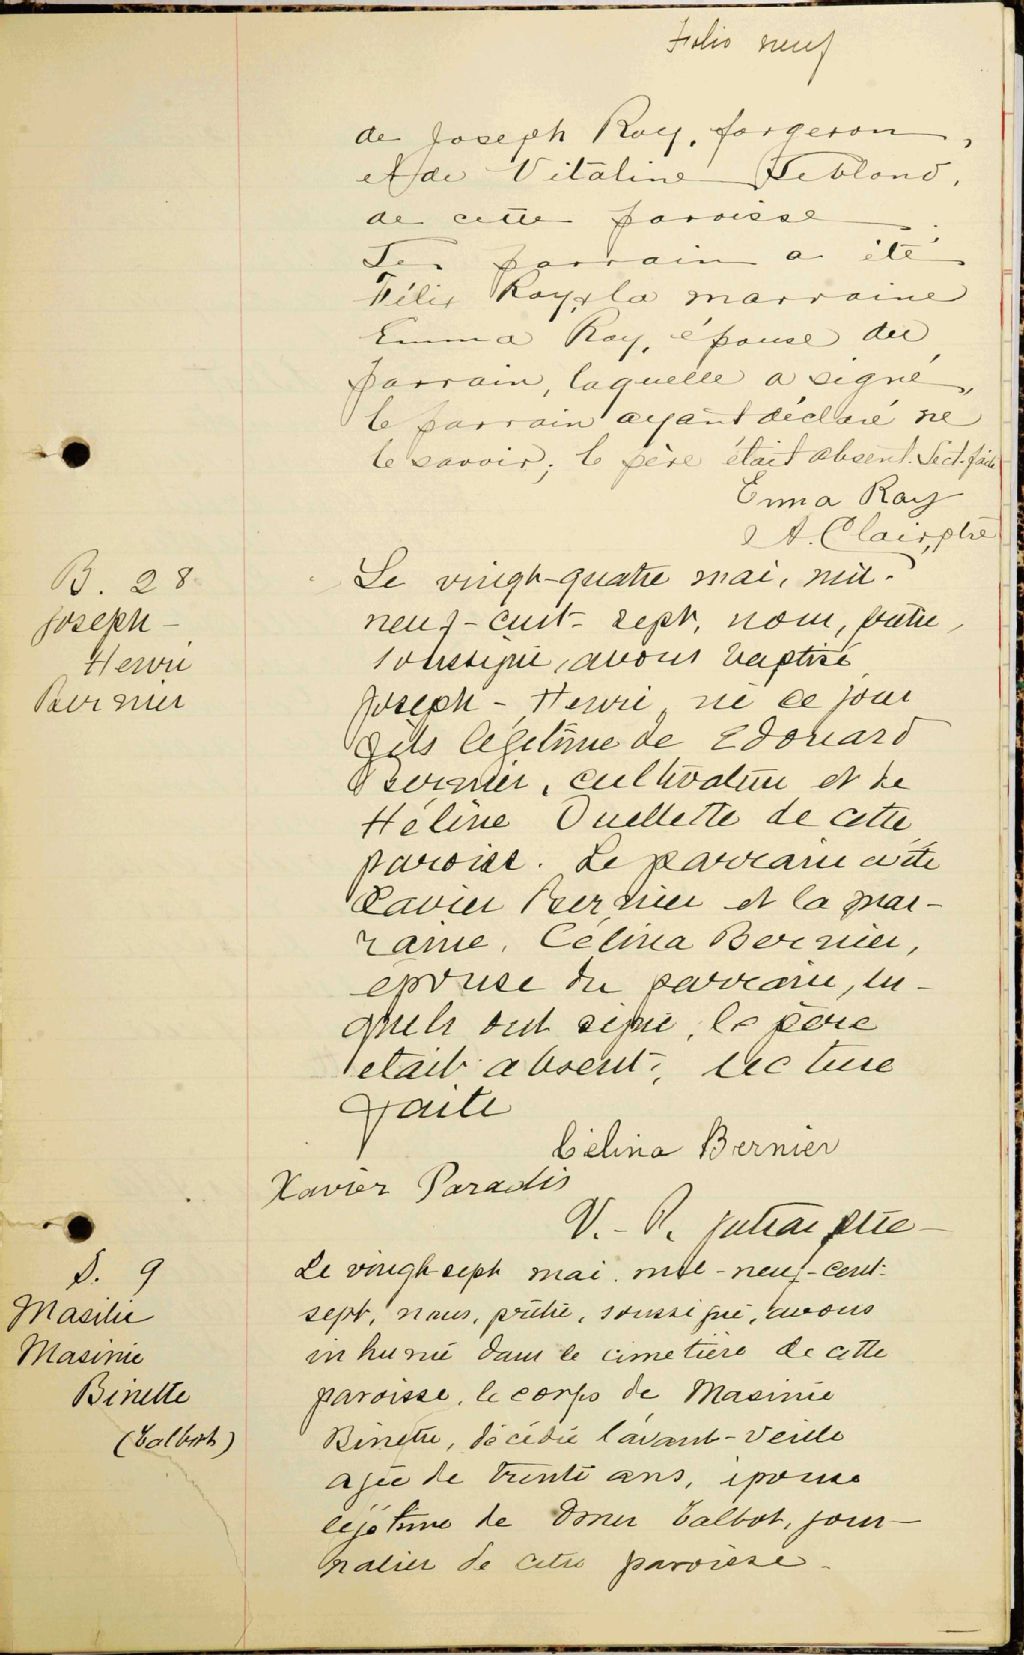 Folio neuf
de Joseph Roy, forgeron,
et de Vitaline Leblond,
de cette paroisse.
Le parrain a été
Félix Roy, & la marraine
Emma Roy, épouse du
parrain, laquelle a signé,
le parrain ayant déclaré ne
le savoir; le père était absent. Lect. faite
Emma Roy
A. Clair, ptre
B. 28
Joseph-
Henri
Bernier
Le vingt-quatre mai, mil-
neuf-cent-sept, nous, prêtre,
soussigné, avons baptisé
Joseph-Henri, né ce jour
fils légitime de Edouard
Bernier, cultivateur et de
Héline Ouellette de cette
paroisse. Le parrain a été
Xavier Bernier et la mar-
raine, Célina Bernier,
épouse du parrain, les-
quels ont signé, le père
était absent, lecture
faite
Célina Bernier
Xavier Paradis
V.-P. ptre
S. 9
Masilie
Masinie
Binette
(Talbot)
Le vingt-sept mai mil-neuf-cent-
sept, nous, prêtre, soussigné, avons
inhumé dans le cimetière de cette
paroisse, le corps de Masinie
Binette, décédée l'avant-veille
agée de trente ans, épouse
légitime de Omer Talbot, jour-
nalier de cette paroisse.